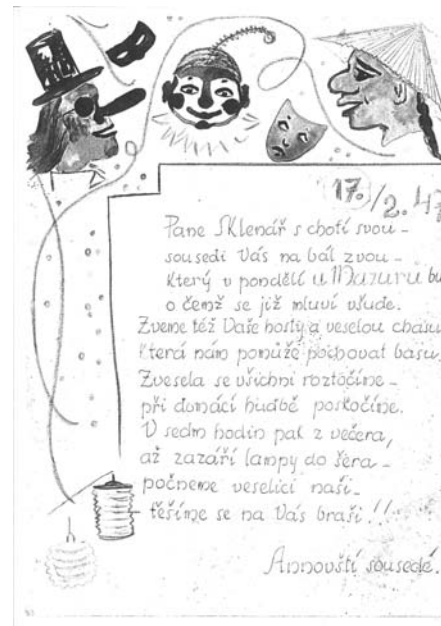 17./2. 47
Pane Sklenář s chotí svou -
sousedi Vás na bál zvou -
který v pondělí u Mazuru bu
o čemž se již mluví všude.
Zveme též Vaše hosty a veselou chasu
která nám pomůže pochovat basu,
Zvesela se všichni roztočíme -
při domácí hudbě poskočíme.
V sedm hodin pak z večera,
až zazáří lampy do šera -
počneme veselici naši -
těšíme se na Vás braši!!
Annovští sousedé.